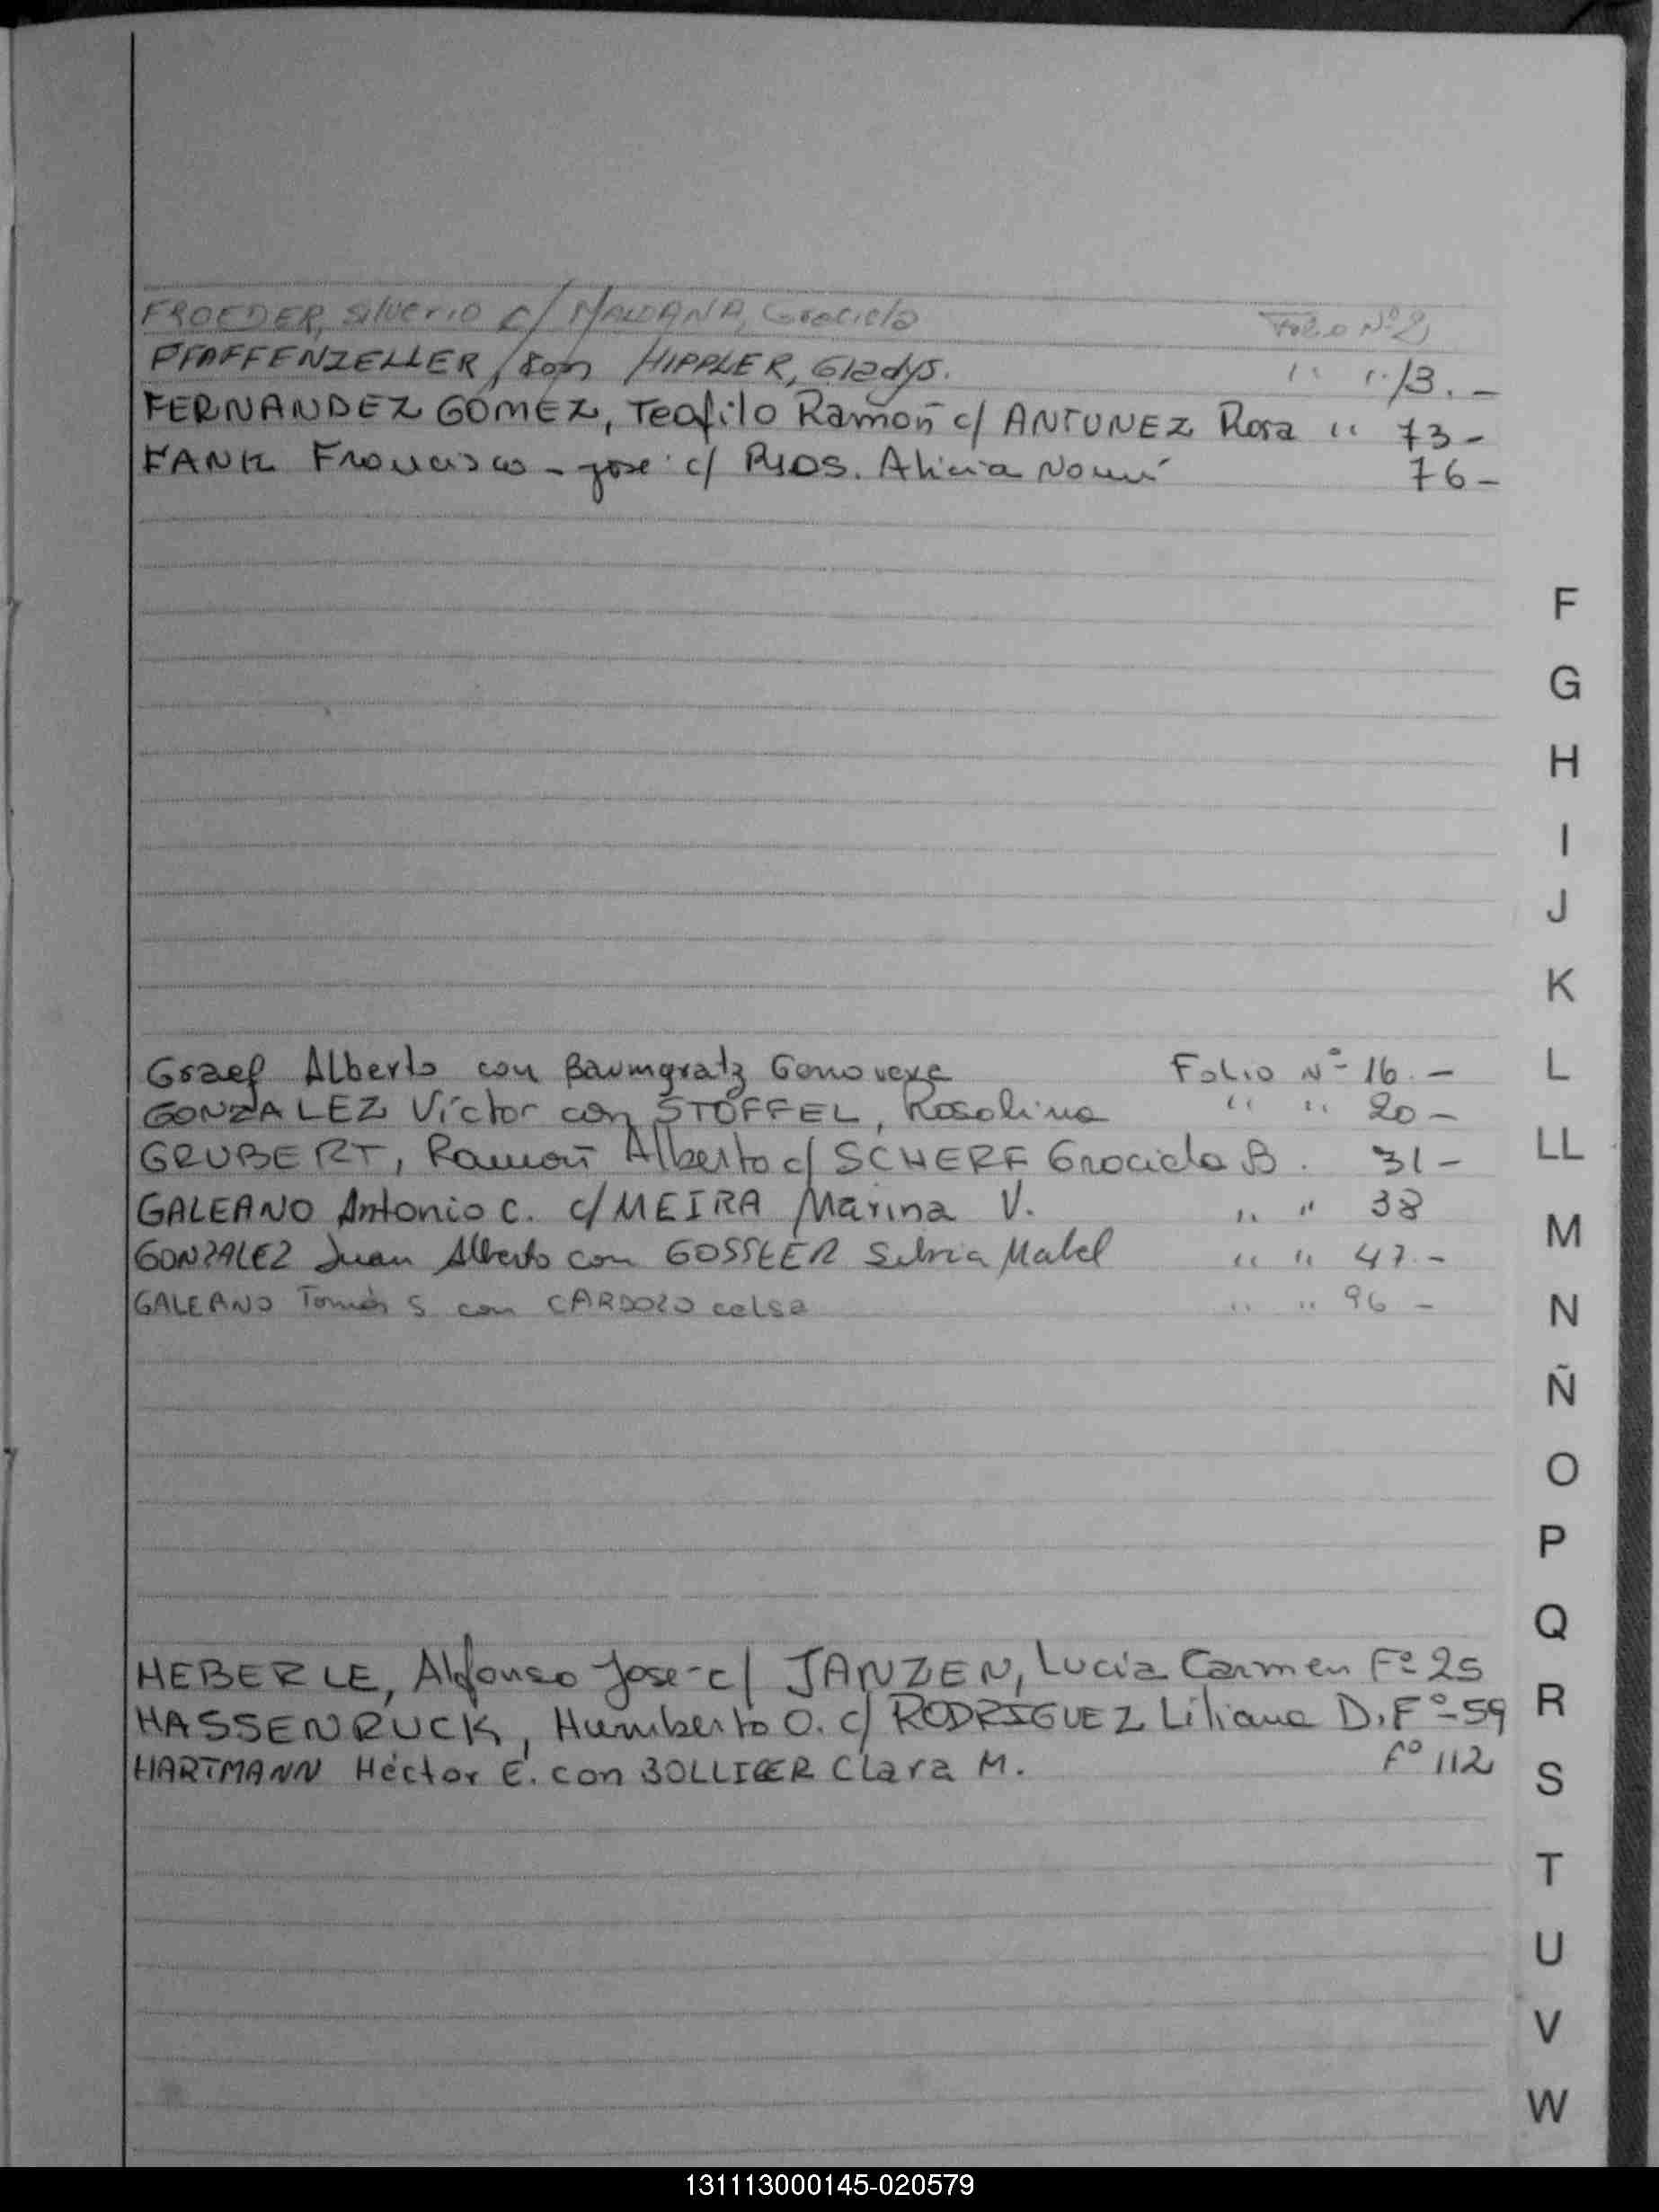 FROEDER, Silverio c/ MALDANA, Graciela Folio Nº 2
PFAFFENZELLER, con HIPPLER, Gladys. " " 13.-
FERNANDEZ GOMEZ, Teofilo Ramón c/ ANTUNEZ Rosa " 73-
FANK Francisco - José c/ RIOS. Alicia Noemí 76-
Graef Alberto con Baumgratz Genoveva Folio Nº 16.-
GONZALEZ Víctor con STOFFEL, Rosalina " " 20-
GRUBERT, Ramón Alberto c/ SCHERF Graciela B. 31-
GALEANO Antonio C. c/ MEIRA Marina V. " " 38
GONZALEZ Juan Alberto con GOSSLER Silvia Mabel " " 47.-
GALEANO Tomás S con CARDOZO celsa " " 96 -
HEBERLE, Alfonso José - c/ JANZEN, Lucia Carmen Fº 25
HASSENRUCK, Humberto O. c/ RODRIGUEZ Liliana D. Fº-59
HARTMANN Héctor E. con BOLLIGER Clara M. Fº 112
F
G
H
I
J
K
L
LL
M
N
Ñ
O
P
Q
R
S
T
U
V
W
131113000145-020579